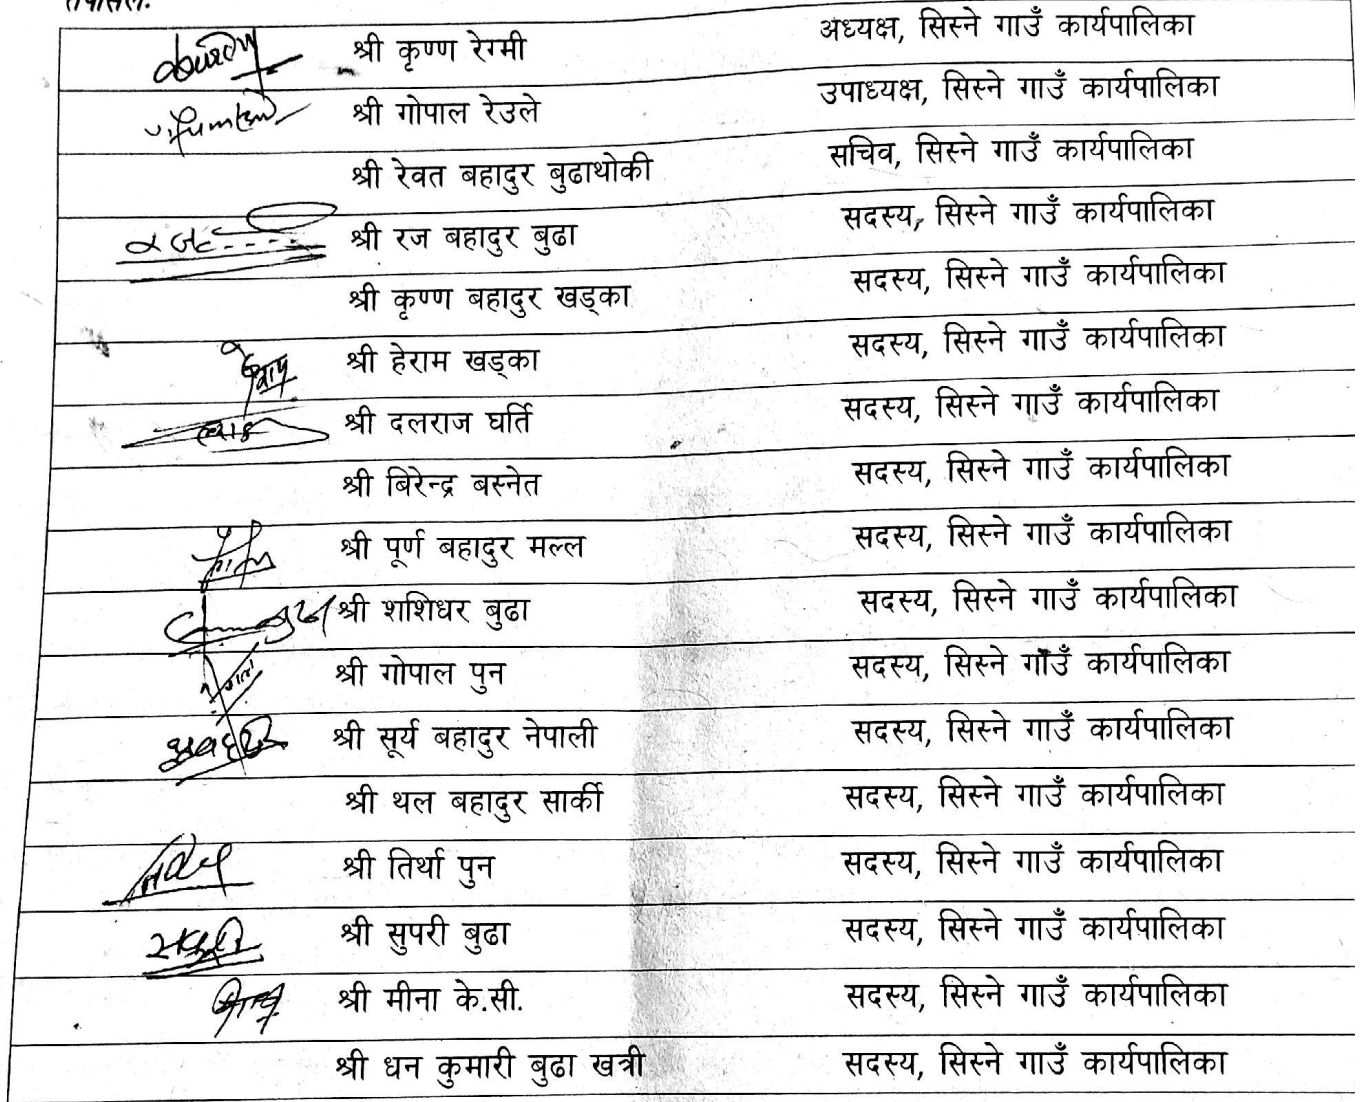 तपसिलः
श्री कृष्ण रेग्मी अध्यक्ष, सिस्ने गाउँ कार्यपालिका
श्री गोपाल रेउले उपाध्यक्ष, सिस्ने गाउँ कार्यपालिका
श्री रेवत बहादुर बुढाथोकी सचिव, सिस्ने गाउँ कार्यपालिका
श्री रज बहादुर बुढा सदस्य, सिस्ने गाउँ कार्यपालिका
श्री कृष्ण बहादुर खड्का सदस्य, सिस्ने गाउँ कार्यपालिका
श्री हेराम खड्का सदस्य, सिस्ने गाउँ कार्यपालिका
श्री दलराज घर्ति सदस्य, सिस्ने गाउँ कार्यपालिका
श्री बिरेन्द्र बस्नेत सदस्य, सिस्ने गाउँ कार्यपालिका
श्री पूर्ण बहादुर मल्ल सदस्य, सिस्ने गाउँ कार्यपालिका
श्री शशिधर बुढा सदस्य, सिस्ने गाउँ कार्यपालिका
श्री गोपाल पुन सदस्य, सिस्ने गाउँ कार्यपालिका
श्री सूर्य बहादुर नेपाली सदस्य, सिस्ने गाउँ कार्यपालिका
श्री थल बहादुर सार्की सदस्य, सिस्ने गाउँ कार्यपालिका
श्री तिर्था पुन सदस्य, सिस्ने गाउँ कार्यपालिका
श्री सुपरी बुढा सदस्य, सिस्ने गाउँ कार्यपालिका
श्री मीना के.सी. सदस्य, सिस्ने गाउँ कार्यपालिका
श्री धन कुमारी बुढा खत्री सदस्य, सिस्ने गाउँ कार्यपालिका